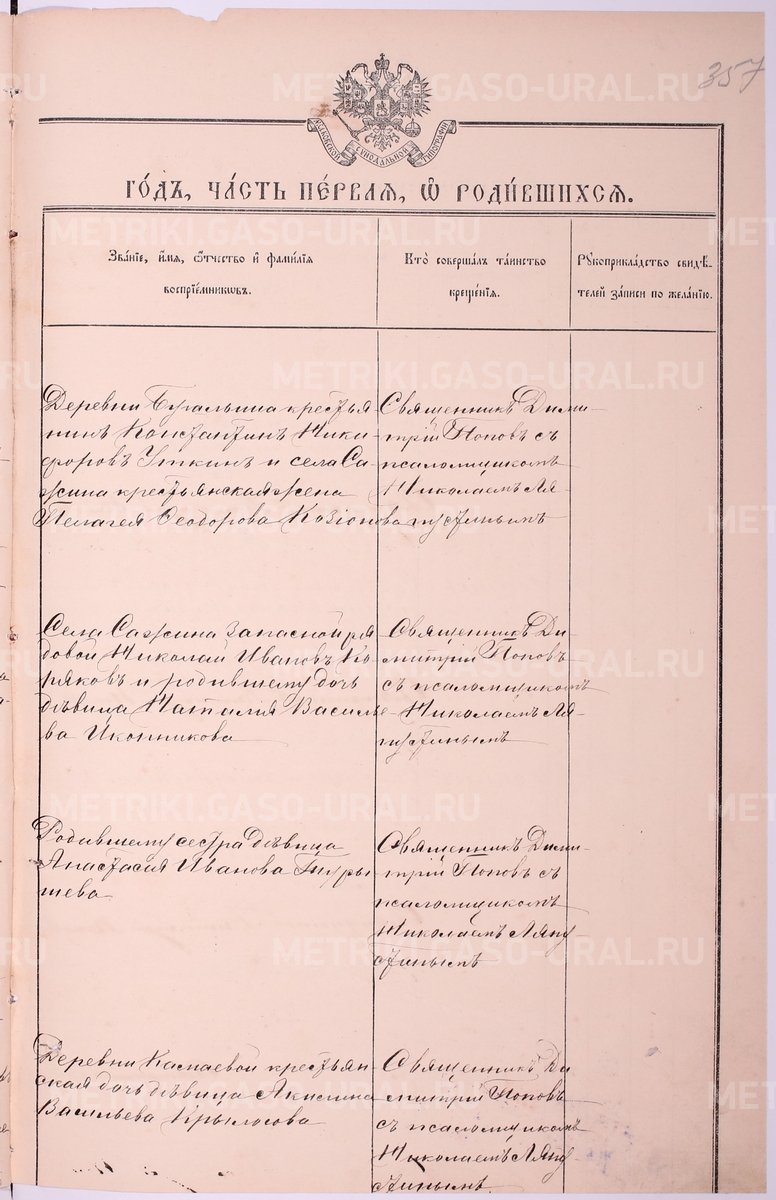 357
МОСКОВСКОЙ СѴНОДАЛЬНОЙ ТИПОГРАФІИ
ГО́ДЪ, ЧА́СТЬ ПЕ́РВАЯ, Ѽ РОДИ́ВШИХСЯ.
Зва́нїе, и́мя, ѻ́тчество и҆ фами́лїя
воспрїе́мникѡвъ.
Кто̀ соверша́лъ та́инство
креще́нїя.
Рꙋкоприкла́дство свидѣ́-
телей за́писи по жела́нїю.
Деревни крестья-
нинъ Константинъ Ники-
форовъ Уткинъ и села Са-
жина крестьянская жена
Пелагея Ѳеодорова Козіонова
Священникъ Дими-
трій Поповъ съ
псаломщикомъ
Николаемъ Ля-
пустинымъ
Села Сажина запасной ря
довой Николай Ивановъ Ко-
ряковъ и родившему дочь
дѣвица Наталія Василье
ва Иконникова
Священникъ Ди-
митрій Поповъ
съ псаломщикомъ
Николаемъ Ля-
пустинымъ
Родившему сестра дѣвица
Анастасія Иванова
шева
Священникъ Дими-
трій Поповъ съ
псаломщикомъ
Николаемъ Ляпу
стинымъ
Деревни Камаевой крестьян
ская дочь дѣвица Акилина
Васильева Крылосова
Священникъ Ди
митрій Поповъ
съ псаломщикомъ
Николаемъ Ляпу-
стинымъ
METRIKI.GASO-URAL.RU